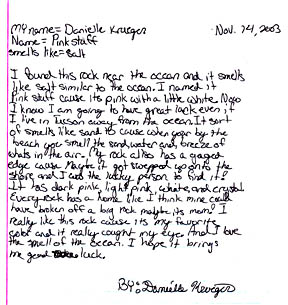 My name = Danielle Krueger Nov. 14, 2003
Name = Pink Stuff
smells like = Salt
I found this rock near the ocean and it smells
like salt similar to the ocean. I named it
Pink Stuff cause its pink with a little white.
I know I am going to have great luck even if
I live in Tucson away from the ocean. It sort
of smells like sand to cause when your by the
beach you smell the sand, water and breeze of
whats in the air. My rock also has a jagged
edge cause maybe it got swepped up onto the
shore and I was the lucky person to find it!
It has dark pink, light pink, white, and crystal
Every rock has a home like I think mine could
have broken off a big rock maybe its mom? I
really like this rock cause its my favorite
color and it really caught my eye. And I love
the smell of the ocean. I hope it brings
me good luck.
By: Danielle Krueger